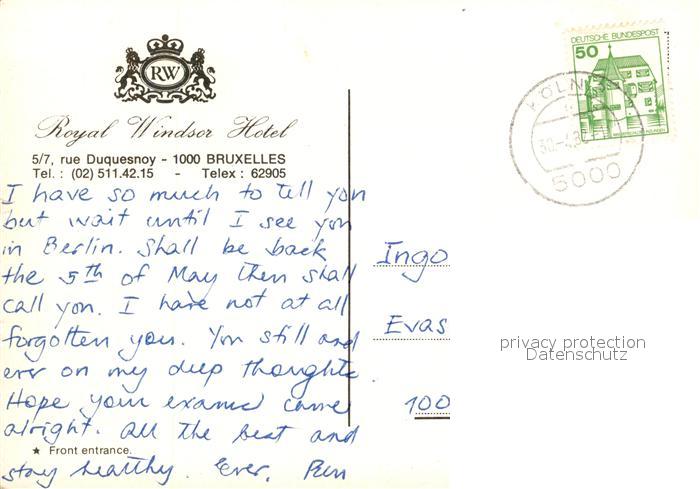 RW
Royal Windsor Hotel
5/7, rue Duquesnoy - 1000 BRUXELLES
Tel. : (02) 511.42.15 - Telex : 62905
I have so much to tell you
but wait until I see you
in Berlin. Shall be back
the 5th of May then shall
call you. I have not at all
forgotten you. You still and
ever on my deep thoughts
Hope your exams came
alright. All the best and
★ Front entrance.
stay healthy. Ever.
DEUTSCHE BUNDESPOST
50
KÖLN
5000
Ingo
Evas
100
privacy protection
Datenschutz